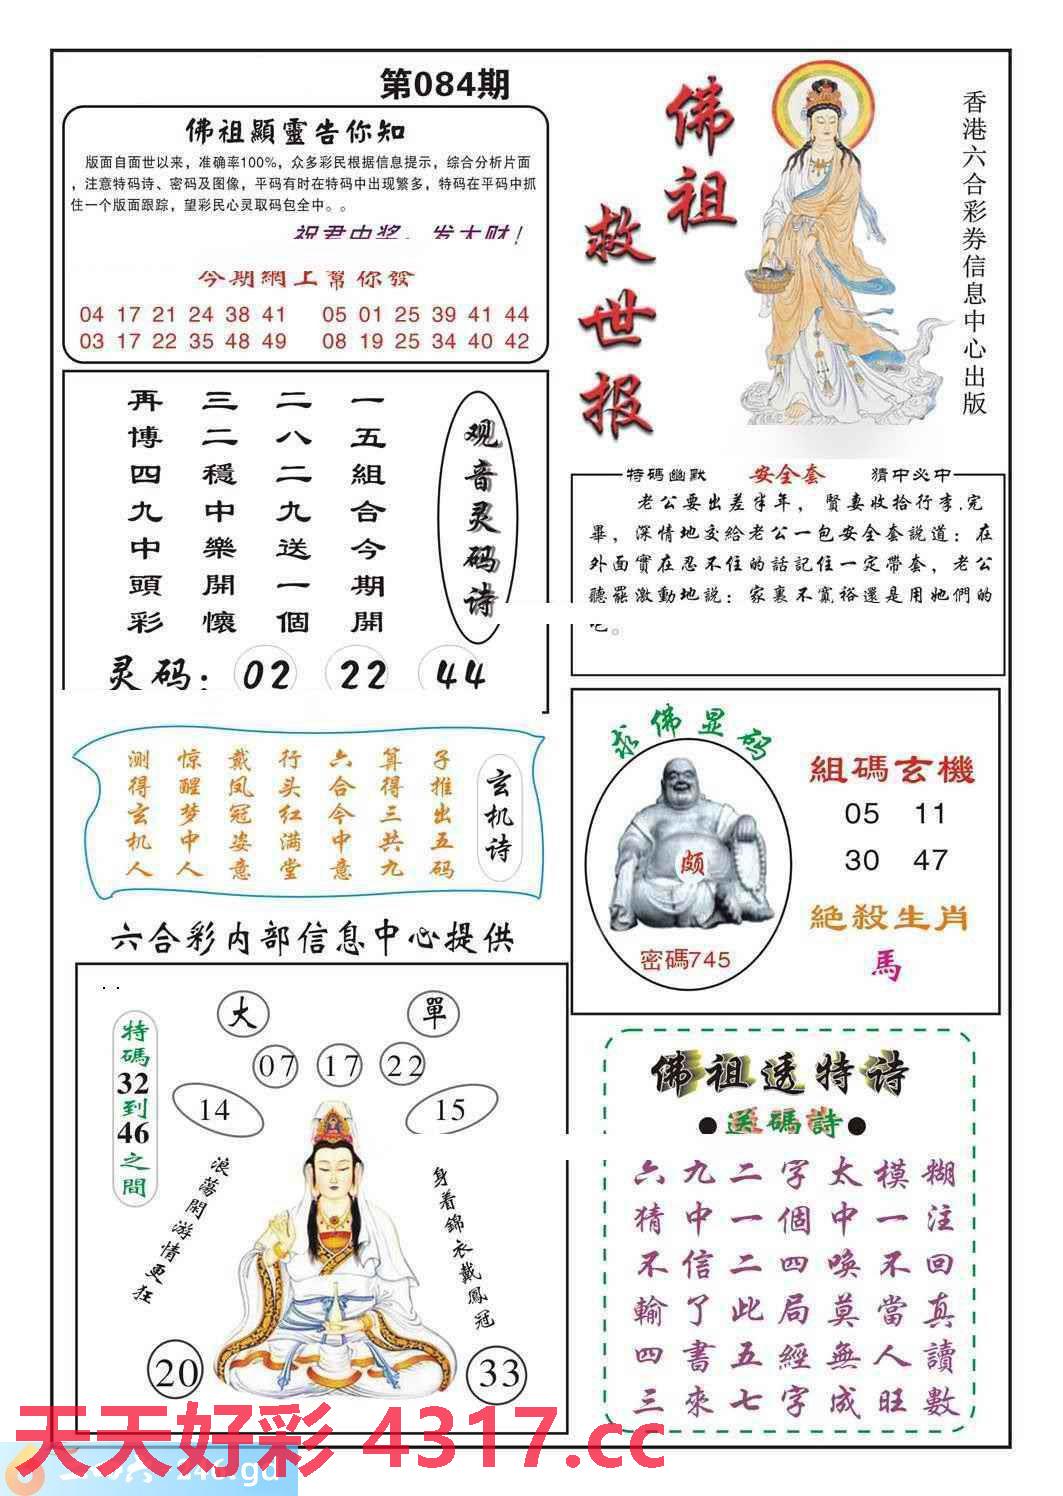 第084期
佛祖顯靈告你知
版面自面世以来，准确率100%，众多彩民根据信息提示，综合分析片面
，注意特码诗、密码及图像，平码有时在特码中出现繁多，特码在平码中抓
住一个版面跟踪，望彩民心灵取码包全中。。
祝君中奖，发大财！
今期網上幫你發
04 17 21 24 38 41 05 01 25 39 41 44
03 17 22 35 48 49 08 19 25 34 40 42
佛祖
救世报
香港六合彩券信息中心出版
观音灵码诗
一五組合今期開
二八二九送一個
三二穩中樂開懷
再博四九中頭彩
灵码：02 22 44
特碼幽默 安全套 猜中必中
老公要出差半年，賢妻收拾行李.完
畢，深情地交給老公一包安全套說道：在
外面實在忍不住的話記住一定帶套，老公
聽罷激動地説：家裏不寬裕還是用她們的
吧。
玄机诗
子推出五码
算得三共九
六合今中意
行头红满堂
戴凤冠姿意
惊醒梦中人
测得玄机人
求佛显码
颇
密碼745
組碼玄機
05 11
30 47
絕殺生肖
馬
六合彩内部信息中心提供
大 單
07 17 22
14 15
特碼32到46之間
浪蕩閑游情更狂
身着錦衣戴鳳冠
20 33
佛祖透特诗
●送碼詩●
六九二字太模糊
猜中一個中一注
不信二四喚不回
輸了此局莫當真
四書五經無人讀
三來七字成旺數
天天好彩 4317.cc
246.gd